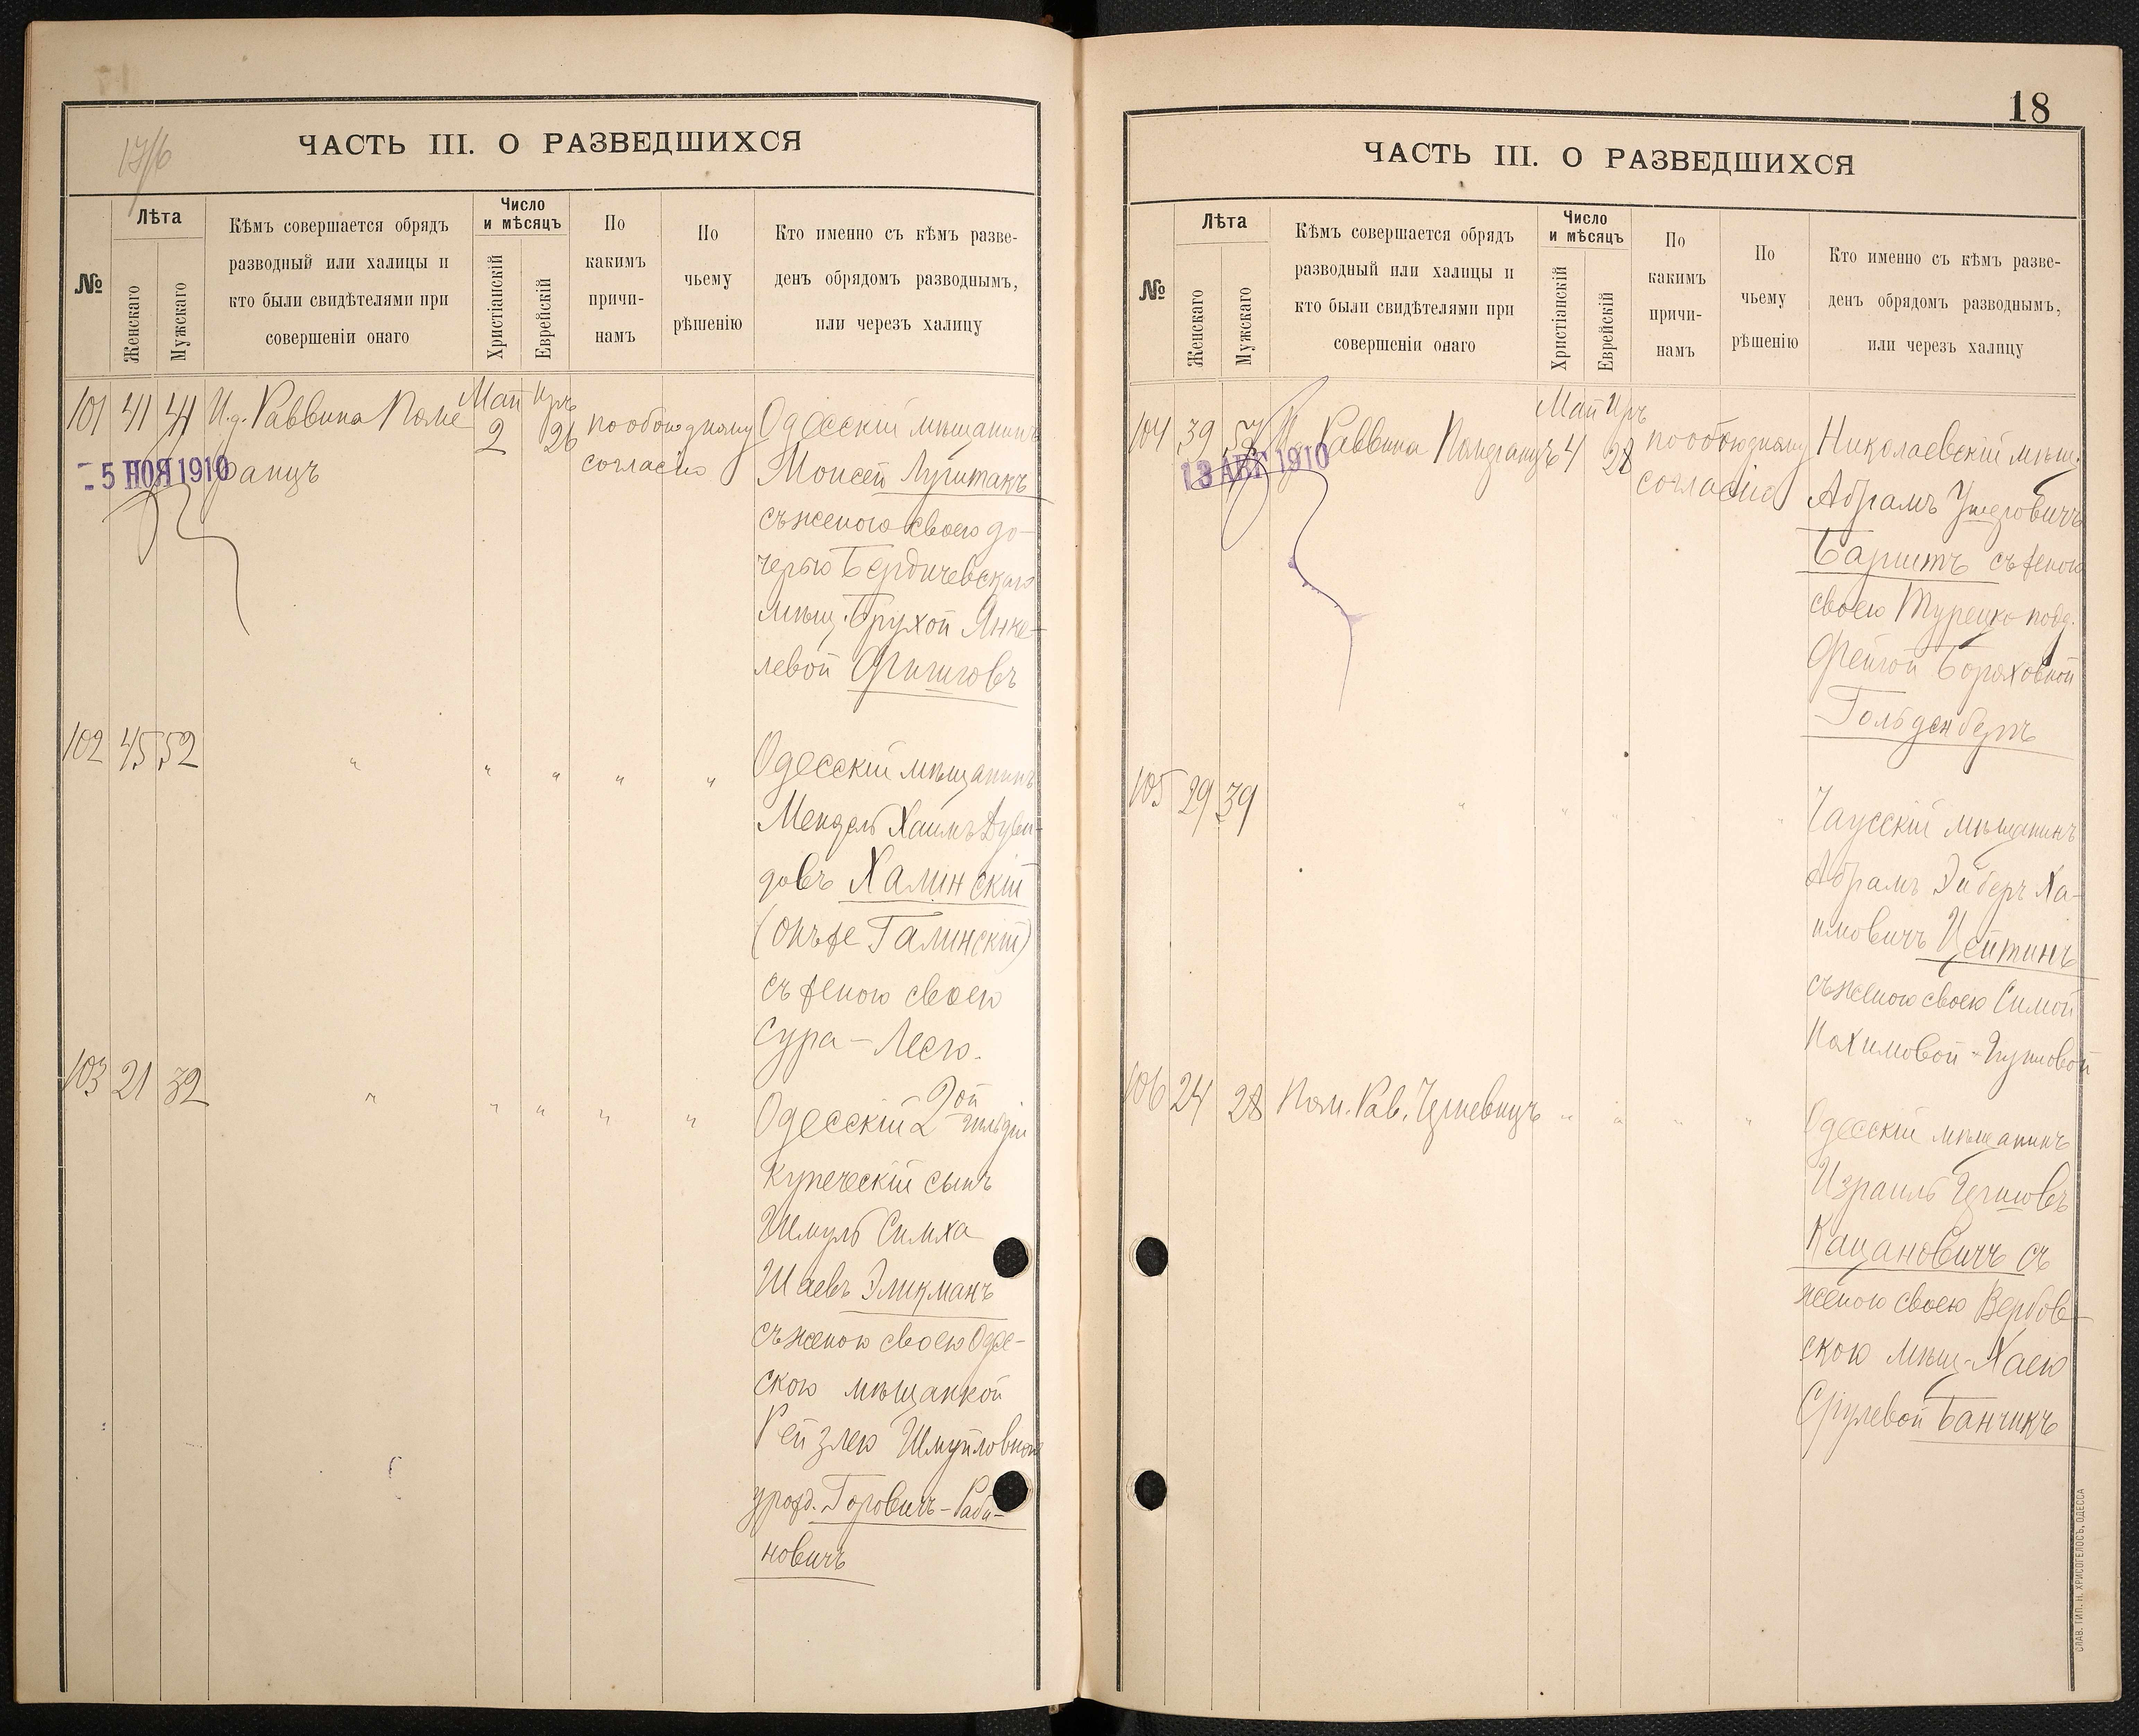 17/6
ЧАСТЬ III. О РАЗВЕДШИХСЯ
№
Лѣта
Женскаго
Мужскаго
Кѣмъ совершается обрядъ
разводный или халицы и
кто были свидѣтелями при
совершеніи онаго
Число
и мѣсяцъ
Христіанскій
Еврейскій
По
какимъ
причи-
намъ
По
чьему
рѣшенію
Кто именно съ кѣмъ разве-
денъ обрядомъ разводнымъ,
или черезъ халицу
101 41 44 И.д. Раввина Поме
ранцъ
- 5 НОЯ 1910
Май
2
Иръ
26
по обоюдному
согласію
Одесскій мѣщанинъ
Моисей
съ женою своею до-
черью Бердичевскаго
мѣщ. Брухой Янке-
левой
102 45 52 " " " " "
Одесскій мѣщанинъ
Мендель Хаимъ Дуви-
довъ Халинскій
(онъ же Галинскій)
съ женою своею
Сура-Леею.
103 21 32 " " " " "
Одесскій 2ой гильдіи
купеческій сынъ
Шмуль Симха
Шаевъ Эликманъ
съ женою своею Одес-
скою мѣщанкой
Рейзлею Шмуйловной
урожд. Горовичъ-Раби-
новичъ
18
ЧАСТЬ III. О РАЗВЕДШИХСЯ
№
Лѣта
Женскаго
Мужскаго
Кѣмъ совершается обрядъ
разводный или халицы и
кто были свидѣтелями при
совершеніи онаго
Число
и мѣсяцъ
Христіанскій
Еврейскій
По
какимъ
причи-
намъ
По
чьему
рѣшенію
Кто именно съ кѣмъ разве-
денъ обрядомъ разводнымъ,
или черезъ халицу
104 39 52 И.д. Раввина Померанцъ
13 АВГ 1910
Май
4
Иръ
28
по обоюдному
согласію
Николаевскій мѣщ.
Абрамъ
съ женою
своею Турецко-подд.
Фейгой Бораховной
Гольденбергъ
105 29 39 " " " " "
Чаусскій мѣщанинъ
Абрамъ Эйберъ Ха-
имовичъ Цейтинъ
съ женою своею Симой
Нохимовой
106 24 28 Пом. Рав. " " " "
Одесскій мѣщанинъ
Израиль
Кацановичъ съ
женою своею Вербов-
скою мѣщ. Хаею
Срулевой Банчикъ
СЛАВ. ТИП. Н. ХРИСОГЕЛОСЪ, ОДЕССА